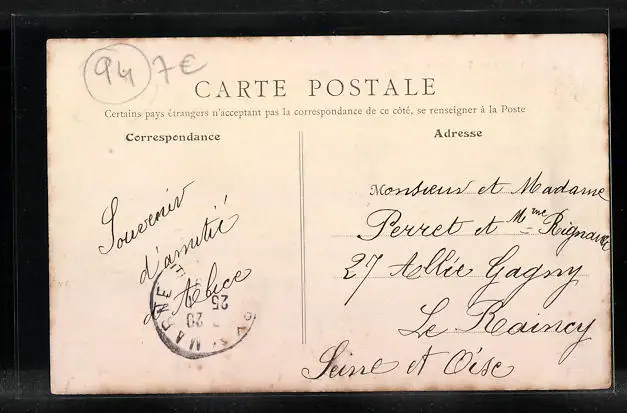 94 7€
CARTE POSTALE
Certains pays étrangers n'acceptant pas la correspondance de ce côté, se renseigner à la Poste
Correspondance
Adresse
Souvenir
d'amitié
d'Alice
Monsieur et Madame
Perret et Mme
27 Allée Gagny
Le Raincy
Seine et Oise
MARNE
20
25